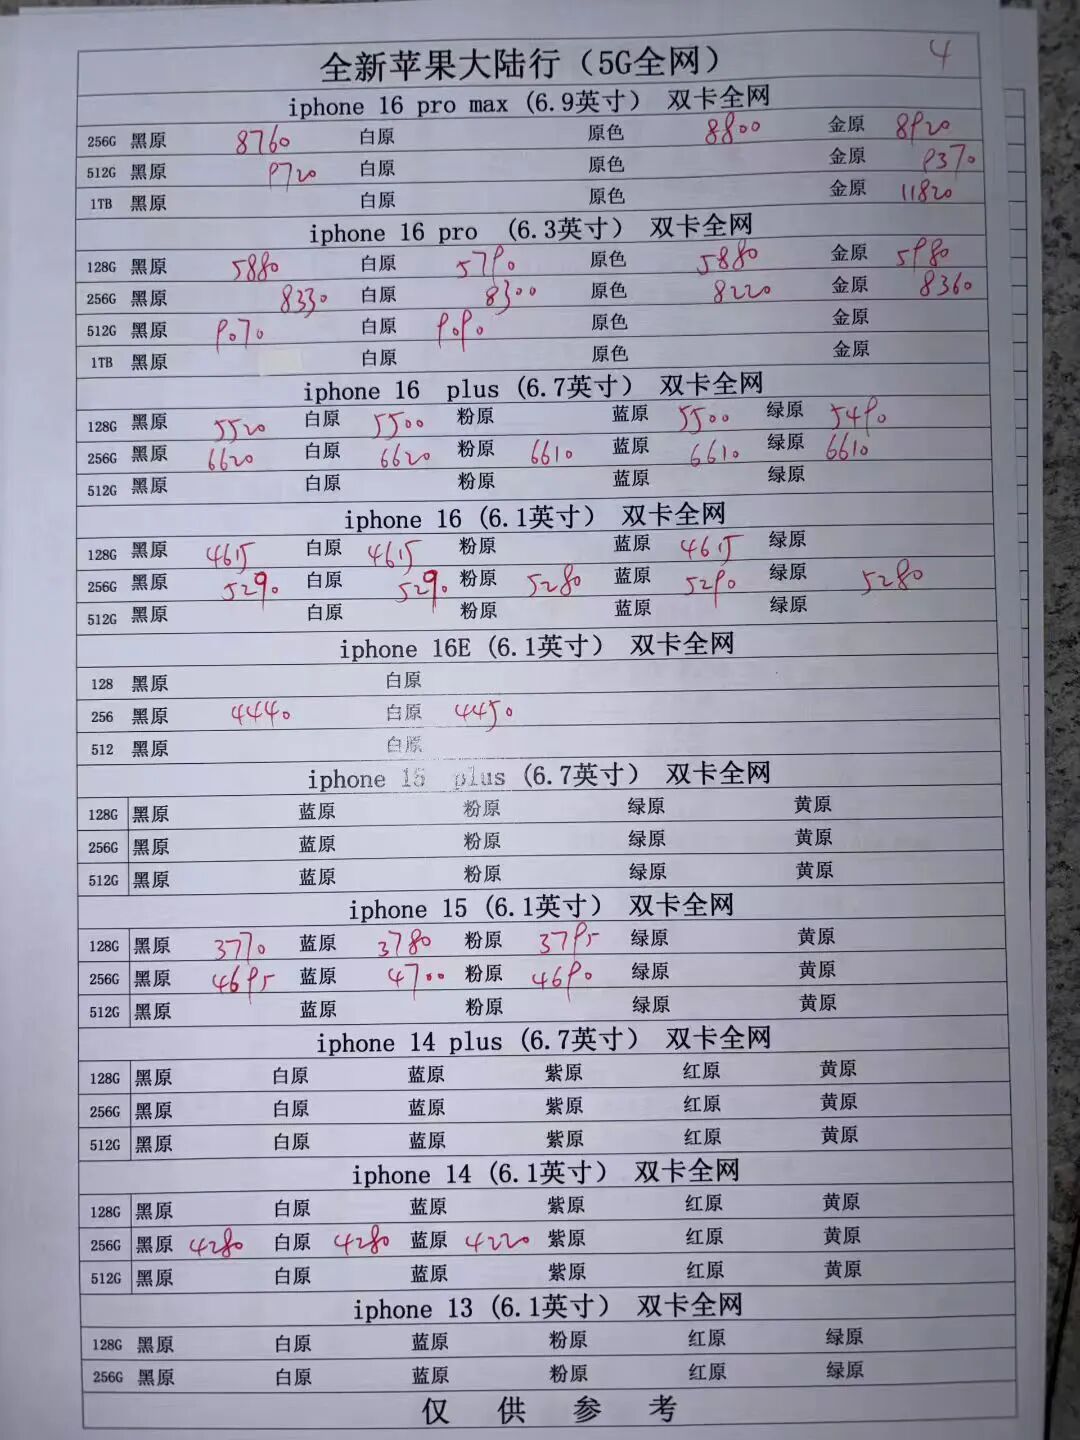 4
全新苹果大陆行（5G全网）
iphone 16 pro max (6.9英寸） 双卡全网
256G 黑原 8760 白原 原色 8800 金原 8920
512G 黑原 9720 白原 原色 金原 9370
1TB 黑原 白原 原色 金原 11820
iphone 16 pro （6.3英寸） 双卡全网
128G 黑原 5880 白原 5790 原色 5880 金原 5980
256G 黑原 8330 白原 8300 原色 8220 金原 8360
512G 黑原 9070 白原 9090 原色 金原
1TB 黑原 白原 原色 金原
iphone 16 plus (6.7英寸） 双卡全网
128G 黑原 5520 白原 5500 粉原 蓝原 5500 绿原 5490
256G 黑原 6620 白原 6620 粉原 6610 蓝原 6610 绿原 6610
512G 黑原 白原 粉原 蓝原 绿原
iphone 16 (6.1英寸） 双卡全网
128G 黑原 4615 白原 4615 粉原 蓝原 4615 绿原
256G 黑原 5290 白原 5290 粉原 5280 蓝原 5290 绿原 5280
512G 黑原 白原 粉原 蓝原 绿原
iphone 16E (6.1英寸） 双卡全网
128 黑原 白原
256 黑原 4440 白原 4450
512 黑原 白原
iphone 15 plus (6.7英寸） 双卡全网
128G 黑原 蓝原 粉原 绿原 黄原
256G 黑原 蓝原 粉原 绿原 黄原
512G 黑原 蓝原 粉原 绿原 黄原
iphone 15 (6.1英寸） 双卡全网
128G 黑原 3770 蓝原 3780 粉原 3795 绿原 黄原
256G 黑原 4695 蓝原 4700 粉原 4690 绿原 黄原
512G 黑原 蓝原 粉原 绿原 黄原
iphone 14 plus (6.7英寸） 双卡全网
128G 黑原 白原 蓝原 紫原 红原 黄原
256G 黑原 白原 蓝原 紫原 红原 黄原
512G 黑原 白原 蓝原 紫原 红原 黄原
iphone 14 (6.1英寸） 双卡全网
128G 黑原 白原 蓝原 紫原 红原 黄原
256G 黑原 4280 白原 4280 蓝原 4220 紫原 红原 黄原
512G 黑原 白原 蓝原 紫原 红原 黄原
iphone 13 (6.1英寸） 双卡全网
128G 黑原 白原 蓝原 粉原 红原 绿原
256G 黑原 白原 蓝原 粉原 红原 绿原
仅 供 参 考